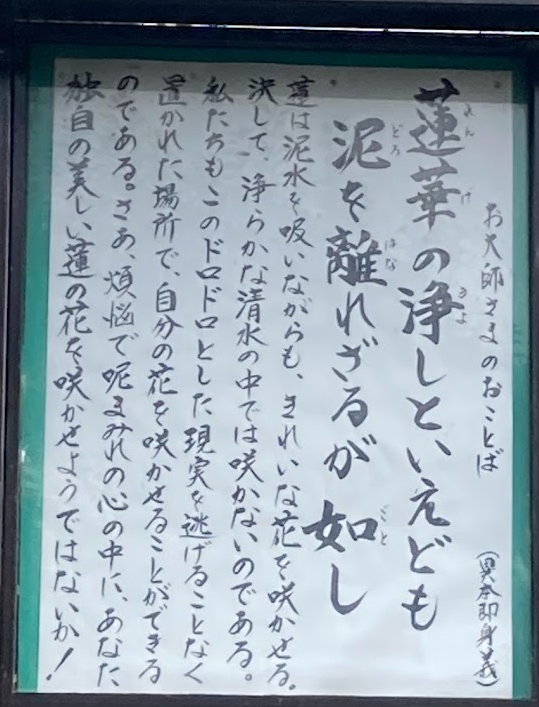 お大師さまのおことば
(異本即身義)
蓮華の浄しといえども
れんげ きよ
泥を離れざるが如し
どろ はな ごと
蓮は泥水を吸いながらも、きれいな花を咲かせる。
決して、浄らかな清水の中では咲かないのである。
私たちもこのドロドロとした現実を逃げることなく
置かれた場所で、自分の花を咲かせることができる
のである。さあ、煩悩で泥まみれの心の中に、あなた
独自の美しい蓮の花を咲かせようではないか!